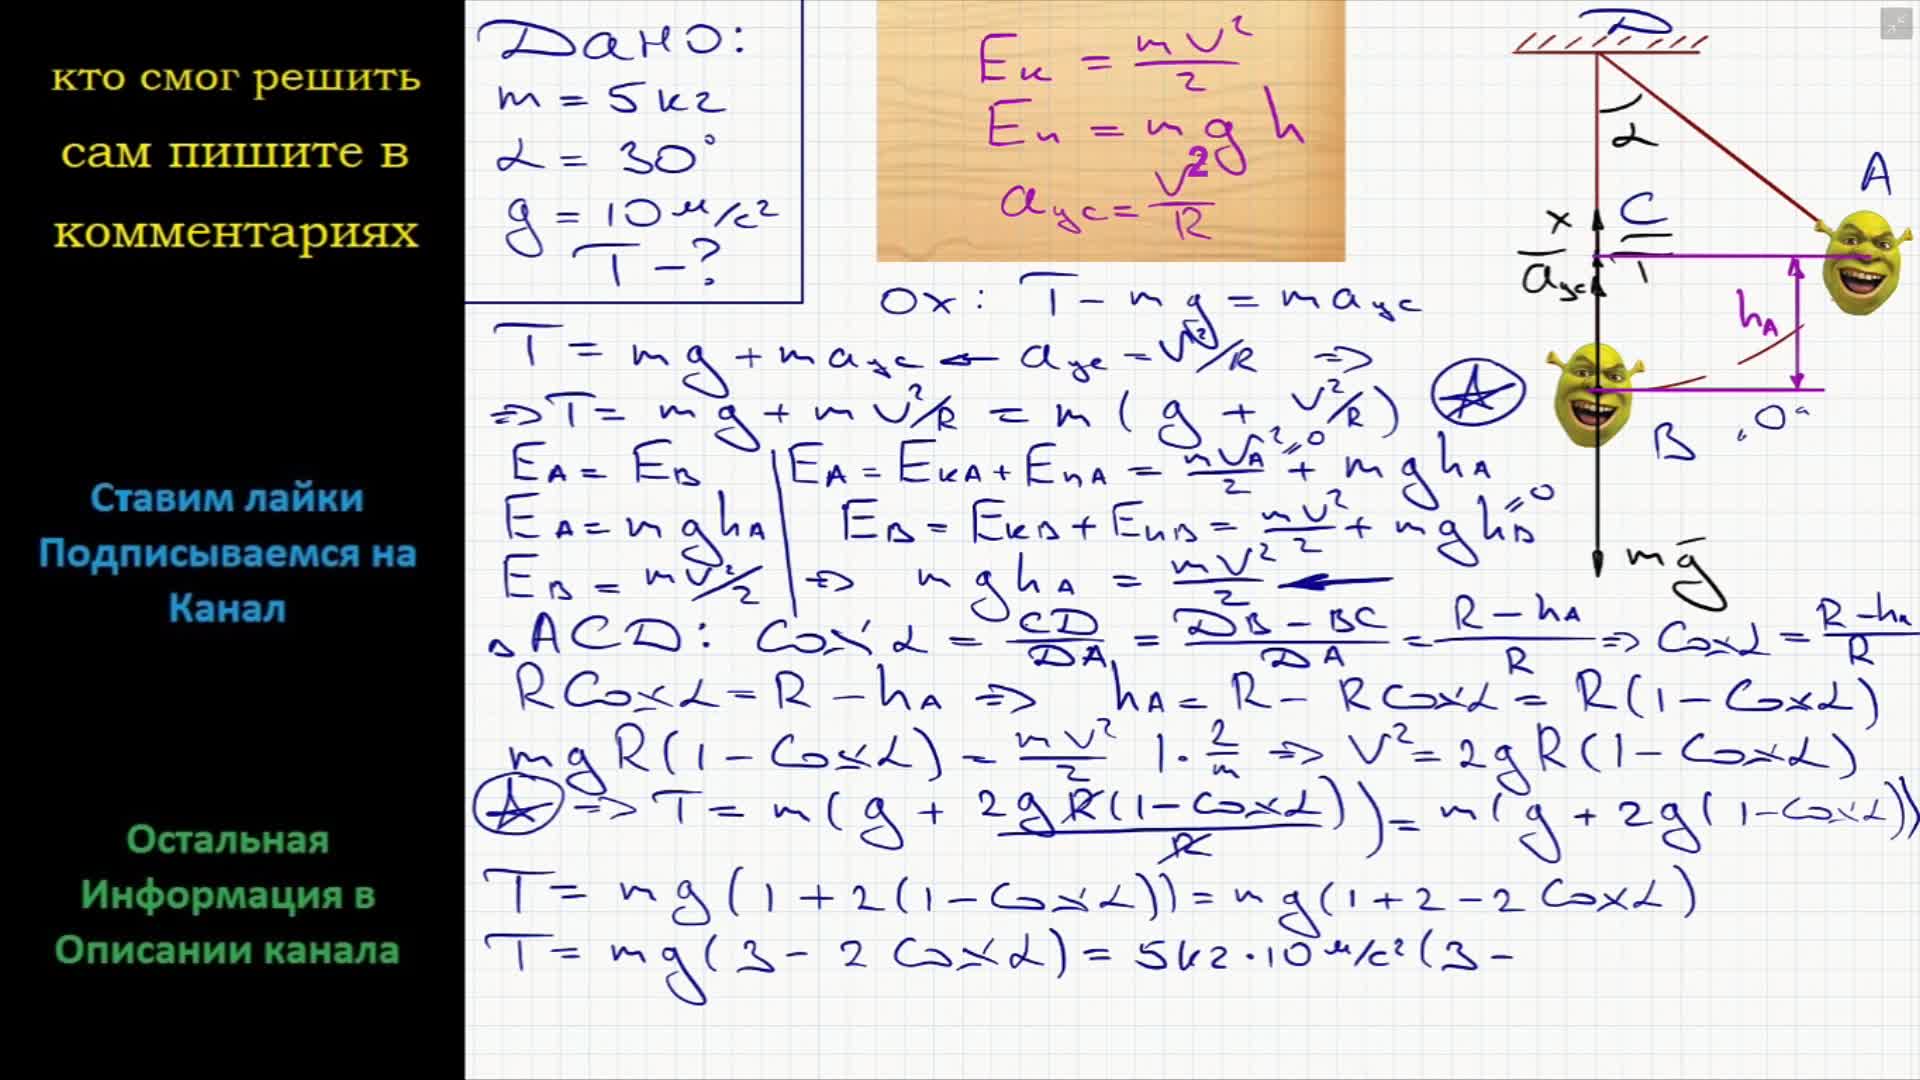 кто смог решить
сам пишите в
комментариях
Ставим лайки
Подписываемся на
Канал
Остальная
Информация в
Описании канала
Дано:
m = 5 кг
α = 30°
g = 10 м/с²
T - ?
Eк = mV²/2
Eп = mgh
aус = V²/R
D
α
A
x
C
aус
T
hA
B
"0"
mg
Ox: T - mg = maус
T = mg + maус ← aус = V²/R =>
=> T = mg + mV²/R = m(g + V²/R) ☆
EA = EB | EA = EкA + EпA = mVA²/2 + mghA
=0
EA = mghA | EB = EкB + EпB = mV²/2 + mghB
=0
EB = mV²/2 | => mghA = mV²/2 ←
△ACD: Cosα = CD/DA = (DB - BC)/DA = (R - hA)/R => Cosα = (R - hA)/R
RCosα = R - hA => hA = R - RCosα = R(1 - Cosα)
mgR(1 - Cosα) = mV²/2 | · 2/m => V² = 2gR(1 - Cosα)
☆ => T = m(g + 2gR(1 - Cosα)/R) = m(g + 2g(1 - Cosα))
T = mg(1 + 2(1 - Cosα)) = mg(1 + 2 - 2Cosα)
T = mg(3 - 2Cosα) = 5кг·10м/с²(3 -